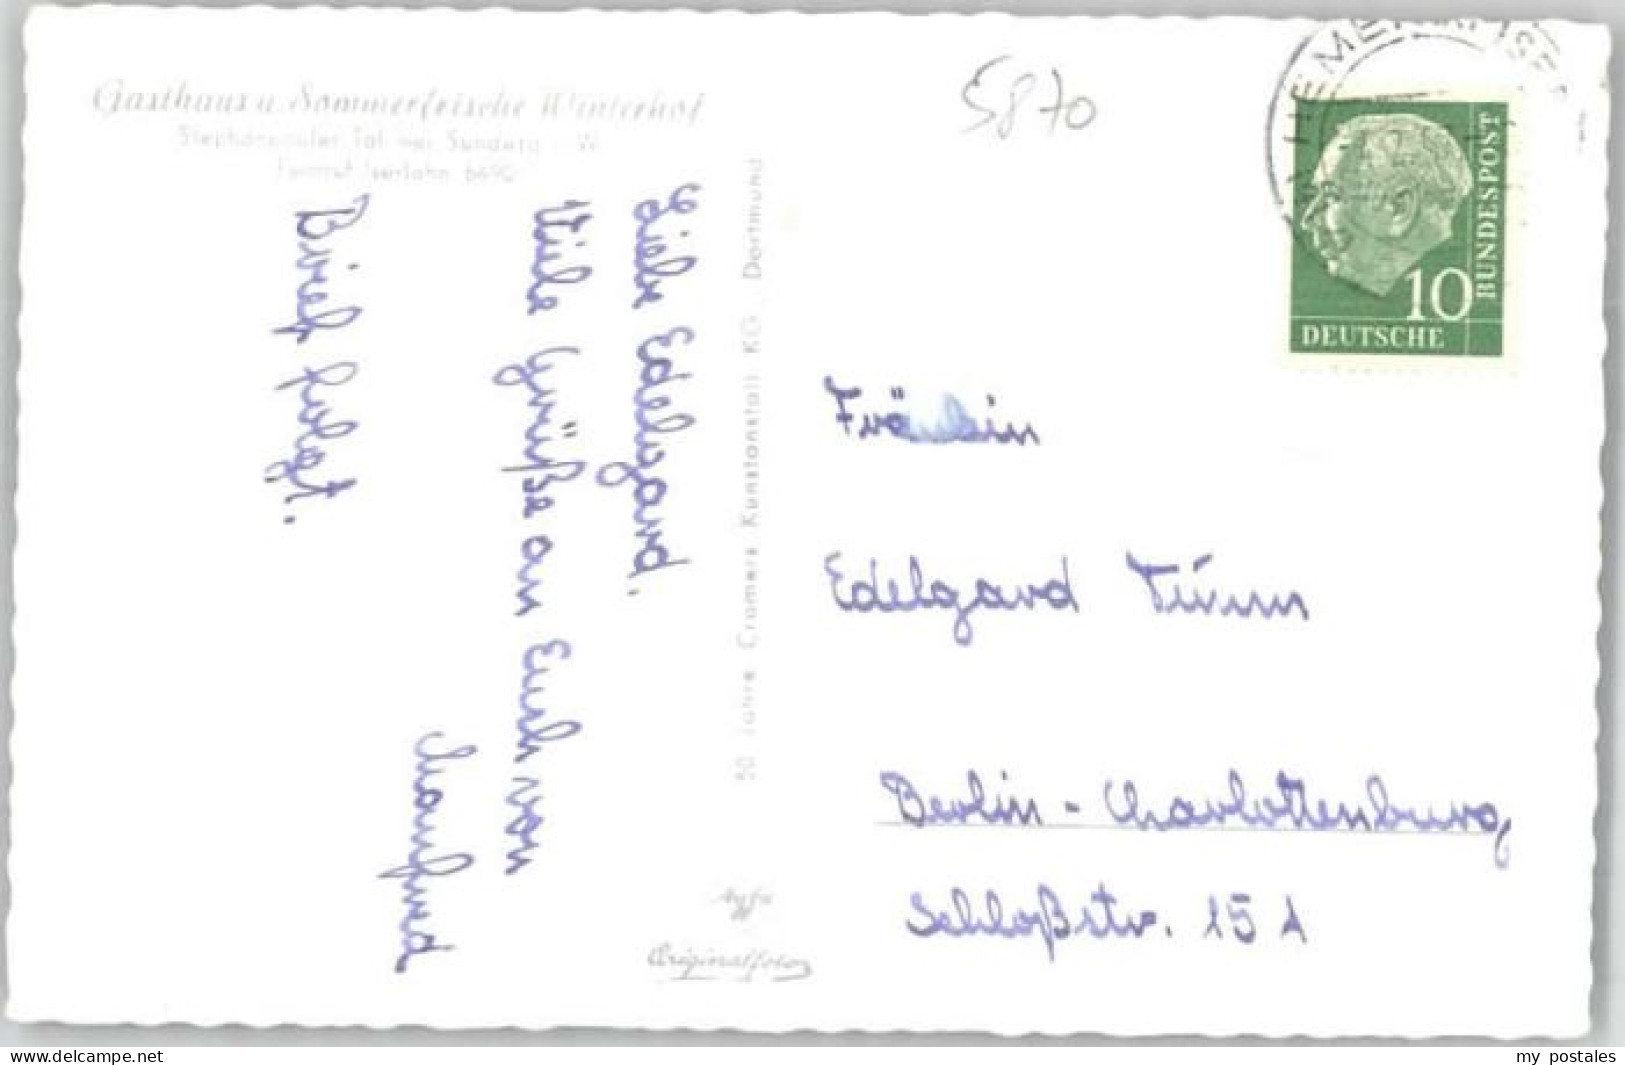 Gasthaus u. Sommerfrische Winterhof
Stephanopeler Tal bei Sundwig i. W.
Fernruf Iserlohn 6690
5870
HEMER
10
DEUTSCHE
BUNDESPOST
Liebe Edelgard.
Viele Grüße an Euch von
Manfred
Brief folgt.
50 Jahre Cramers Kunstanstalt KG, Dortmund
Agfa
Originalfoto
Fräulein
Edelgard Timm
Berlin-Charlottenburg
Schloßstr. 15 A
www.delcampe.net
my_postales